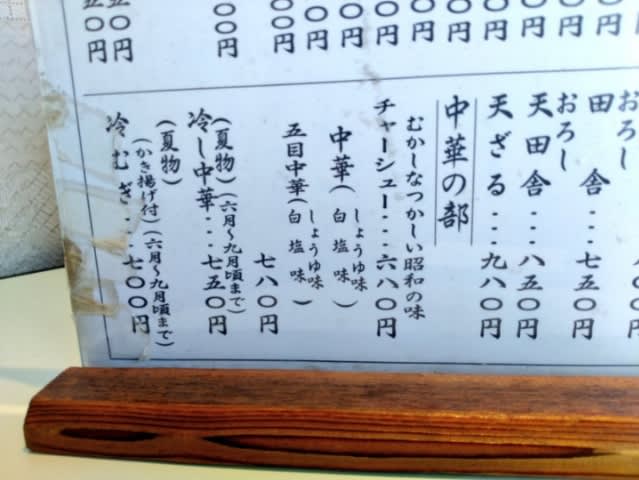 〇円
〇円
〇円
〇円
〇円
〇円
〇円
〇円
〇円
〇〇円
〇〇円
五〇円
五〇円
おろし
おろし
田舎...七五〇円
天田舎...八五〇円
天ざる...九八〇円
中華の部
むかしなつかしい昭和の味
チャーシュー...六八〇円
中華(しょうゆ味 白塩味)
五目中華(しょうゆ味 白塩味)
七八〇円
(夏物)(六月～九月頃まで)
冷し中華...七五〇円
(夏物)
(かき揚げ付)(六月～九月頃まで)
冷むぎ...七〇〇円